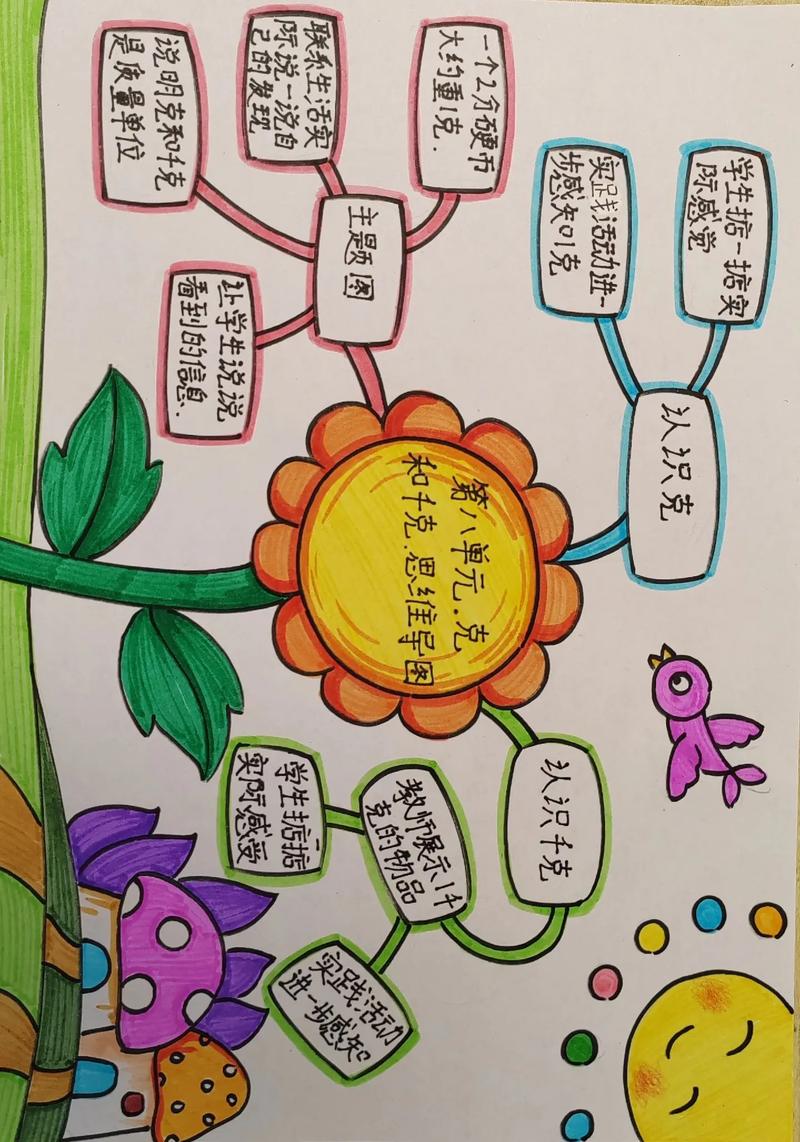 第八单元.克
和千克.思维导图
主题图
一个2分硬币
大约重1克.
联系生活实
际说一说自
己的发现
说明克和千克
是质量单位
让学生说说
看到的信息.
认识克
学生掂一掂实
际感觉
实践活动进一
步感知1克
认识千克
教师展示1千
克的物品
学生掂掂
实际感受
实践活动
进一步感知